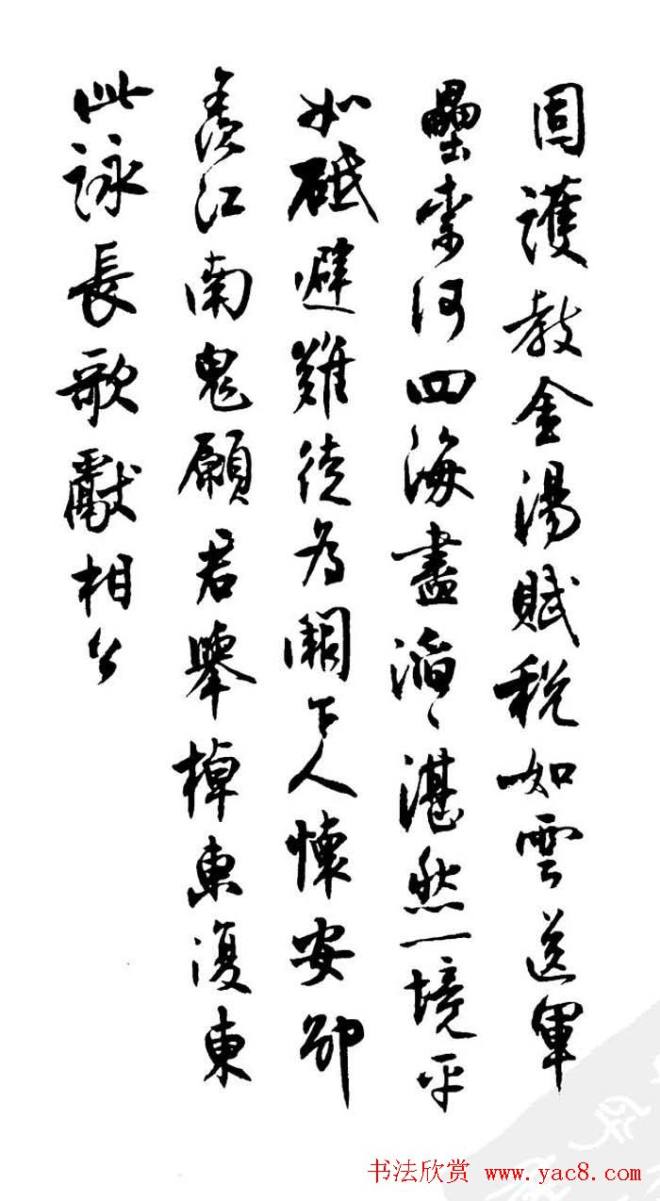 固護教金湯賦税如雲送軍
壘柰何四海盡滔々湛然一境平
如砥避難徒為闕下人懷安卻
羨江南鬼願君舉棹東復東
此詠長歌獻相公
书法欣赏 www.yac8.com